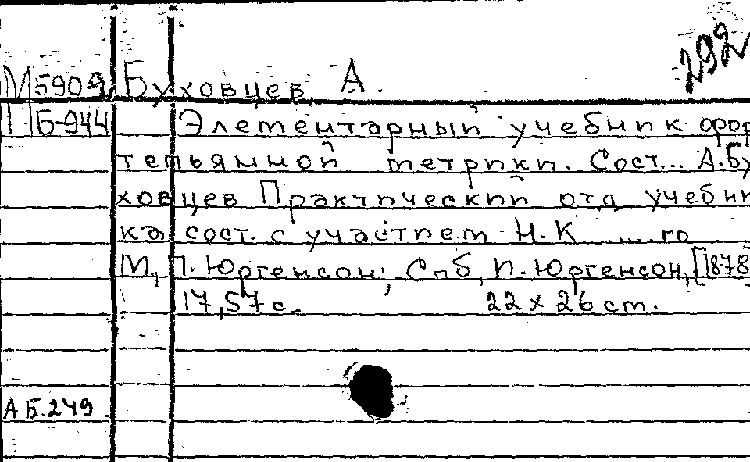 292
М 5909 Буховцев, А.
П Б-944 Элементарный учебник фор
тепьянной метрики. Сост... А. Бу
ховцев Практический отд. учебни
ка сост. с участием Н. К ....го
М., П. Юргенсон; Спб, И. Юргенсон, [1878
17, 57 с. 22 х 26 см.
АБ. 249